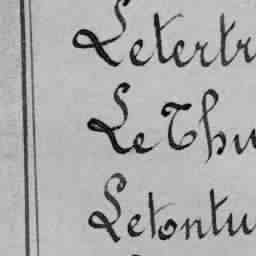 Letertr
Le Thu
Letontu